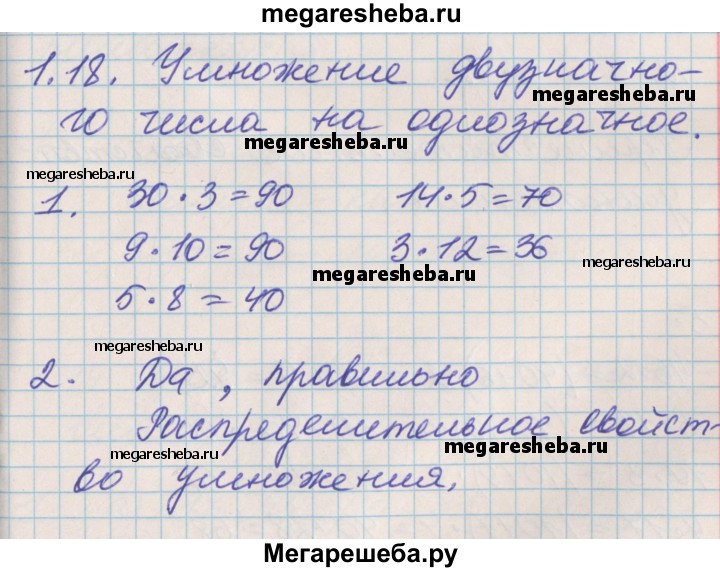 megaresheba.ru
1.18. Умножение двузначно-
megaresheba.ru
го числа на однозначное.
megaresheba.ru
megaresheba.ru
1. 30 · 3 = 90 14 · 5 = 70
9 · 10 = 90 3 · 12 = 36
megaresheba.ru
megaresheba.ru
5 · 8 = 40
megaresheba.ru
2. Да, правильно
Распределительное свойст-
megaresheba.ru
megaresheba.ru
во умножения.
Мегарешеба.ру